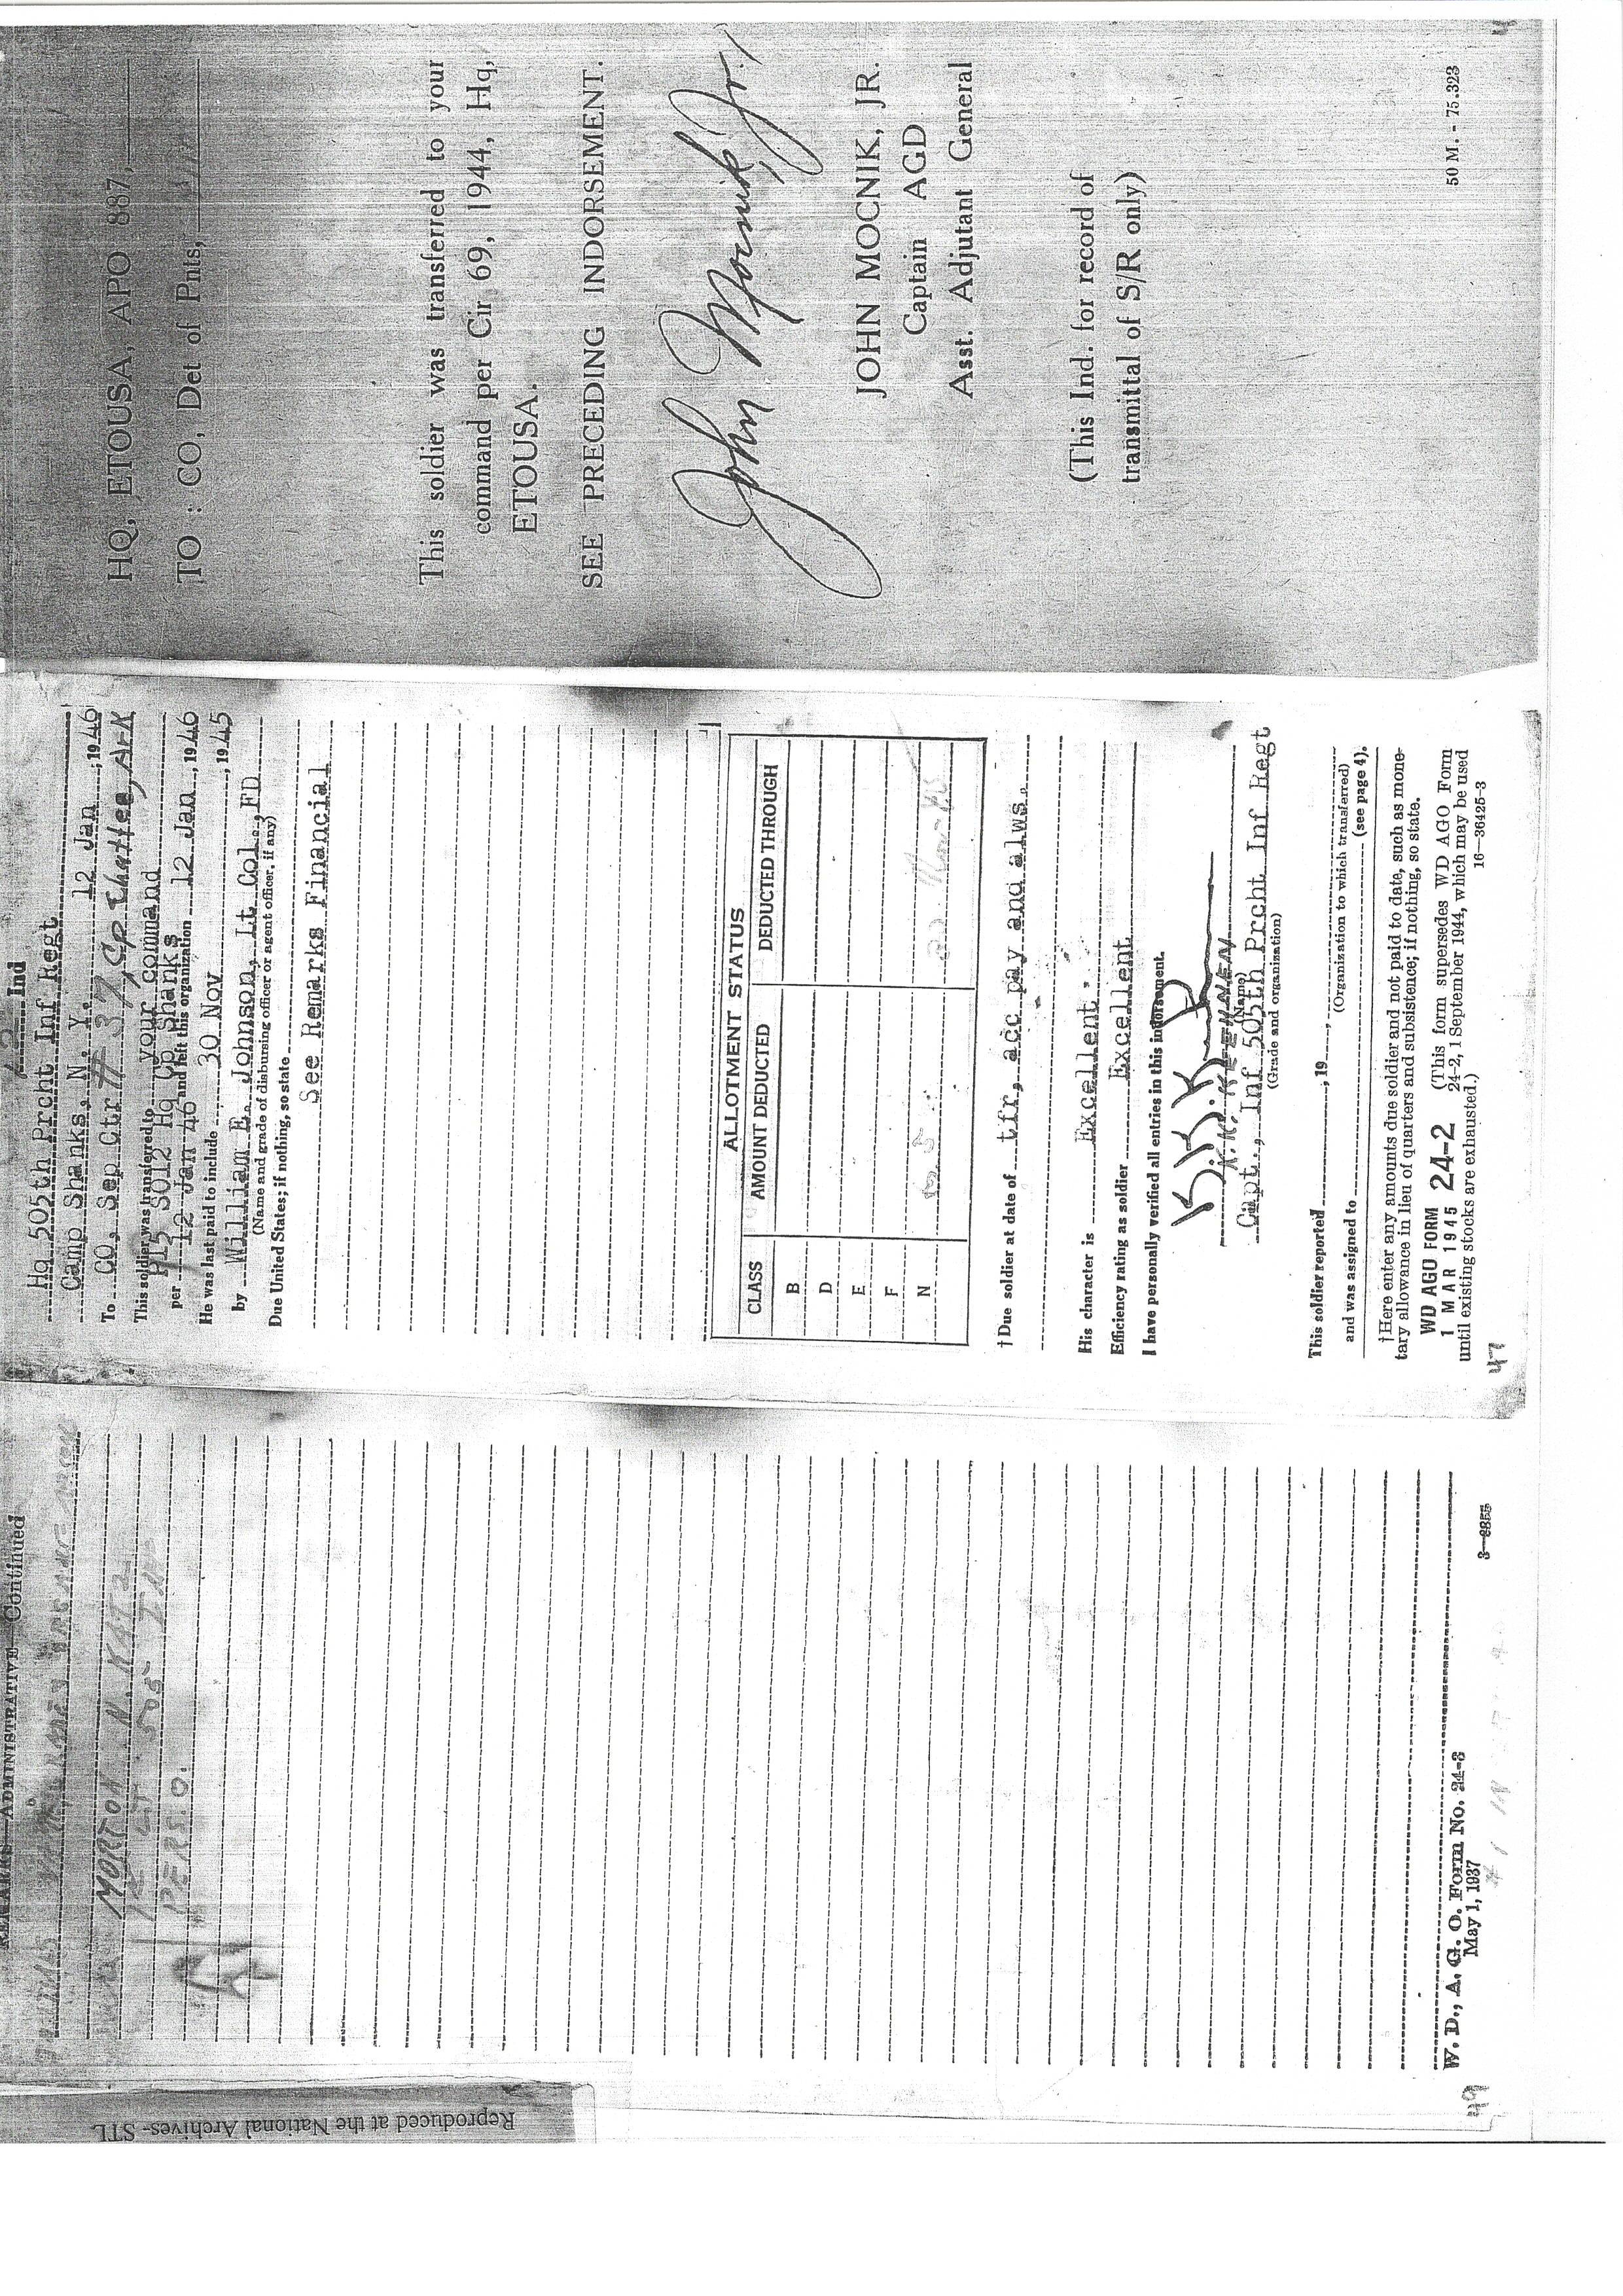 REMARKS—ADMINISTRATIVE—Continued
MORTON N. KATZ
1st LT 505 INF
PERS. O.
W. D., A. G. O. Form No. 24-3
May 1, 1937
3—8855
49
Reproduced at the National Archives- STL
Ind
Hq 505th Prcht Inf Regt
Camp Shanks, N. Y. 12 Jan, 1946
To CO, Sep Ctr # 37, Cp Chaffee, Ark
This soldier was transferred to your command
per P15 SO12 Hq Cp Shanks
12 Jan 46 and left this organization 12 Jan, 1946
He was last paid to include 30 Nov, 1945
by William E. Johnson, Lt Col., FD
(Name and grade of disbursing officer or agent officer, if any)
Due United States; if nothing, so state
See Remarks Financial
ALLOTMENT STATUS
CLASS AMOUNT DEDUCTED DEDUCTED THROUGH
B
D
E
F
N
†Due soldier at date of tfr, acc pay and alws.
His character is Excellent
Efficiency rating as soldier Excellent
I have personally verified all entries in this indorsement.
(Name)
Capt., Inf 505th Prcht Inf Regt
(Grade and organization)
This soldier reported , 19 ,
(Organization to which transferred)
and was assigned to (see page 4).
†Here enter any amounts due soldier and not paid to date, such as mone-
tary allowance in lieu of quarters and subsistence; if nothing, so state.
WD AGO FORM 24-2 (This form supersedes WD AGO Form
1 MAR 1945 24-2, 1 September 1944, which may be used
until existing stocks are exhausted.) 16—36425-3
47
HQ, ETOUSA, APO 887,
TO : CO, Det of Pnts,
This soldier was transferred to your
command per Cir 69, 1944, Hq,
ETOUSA.
SEE PRECEDING INDORSEMENT.
John Mocnik Jr.
JOHN MOCNIK, JR.
Captain AGD
Asst. Adjutant General
(This Ind. for record of
transmittal of S/R only)
50 M. - 75.323